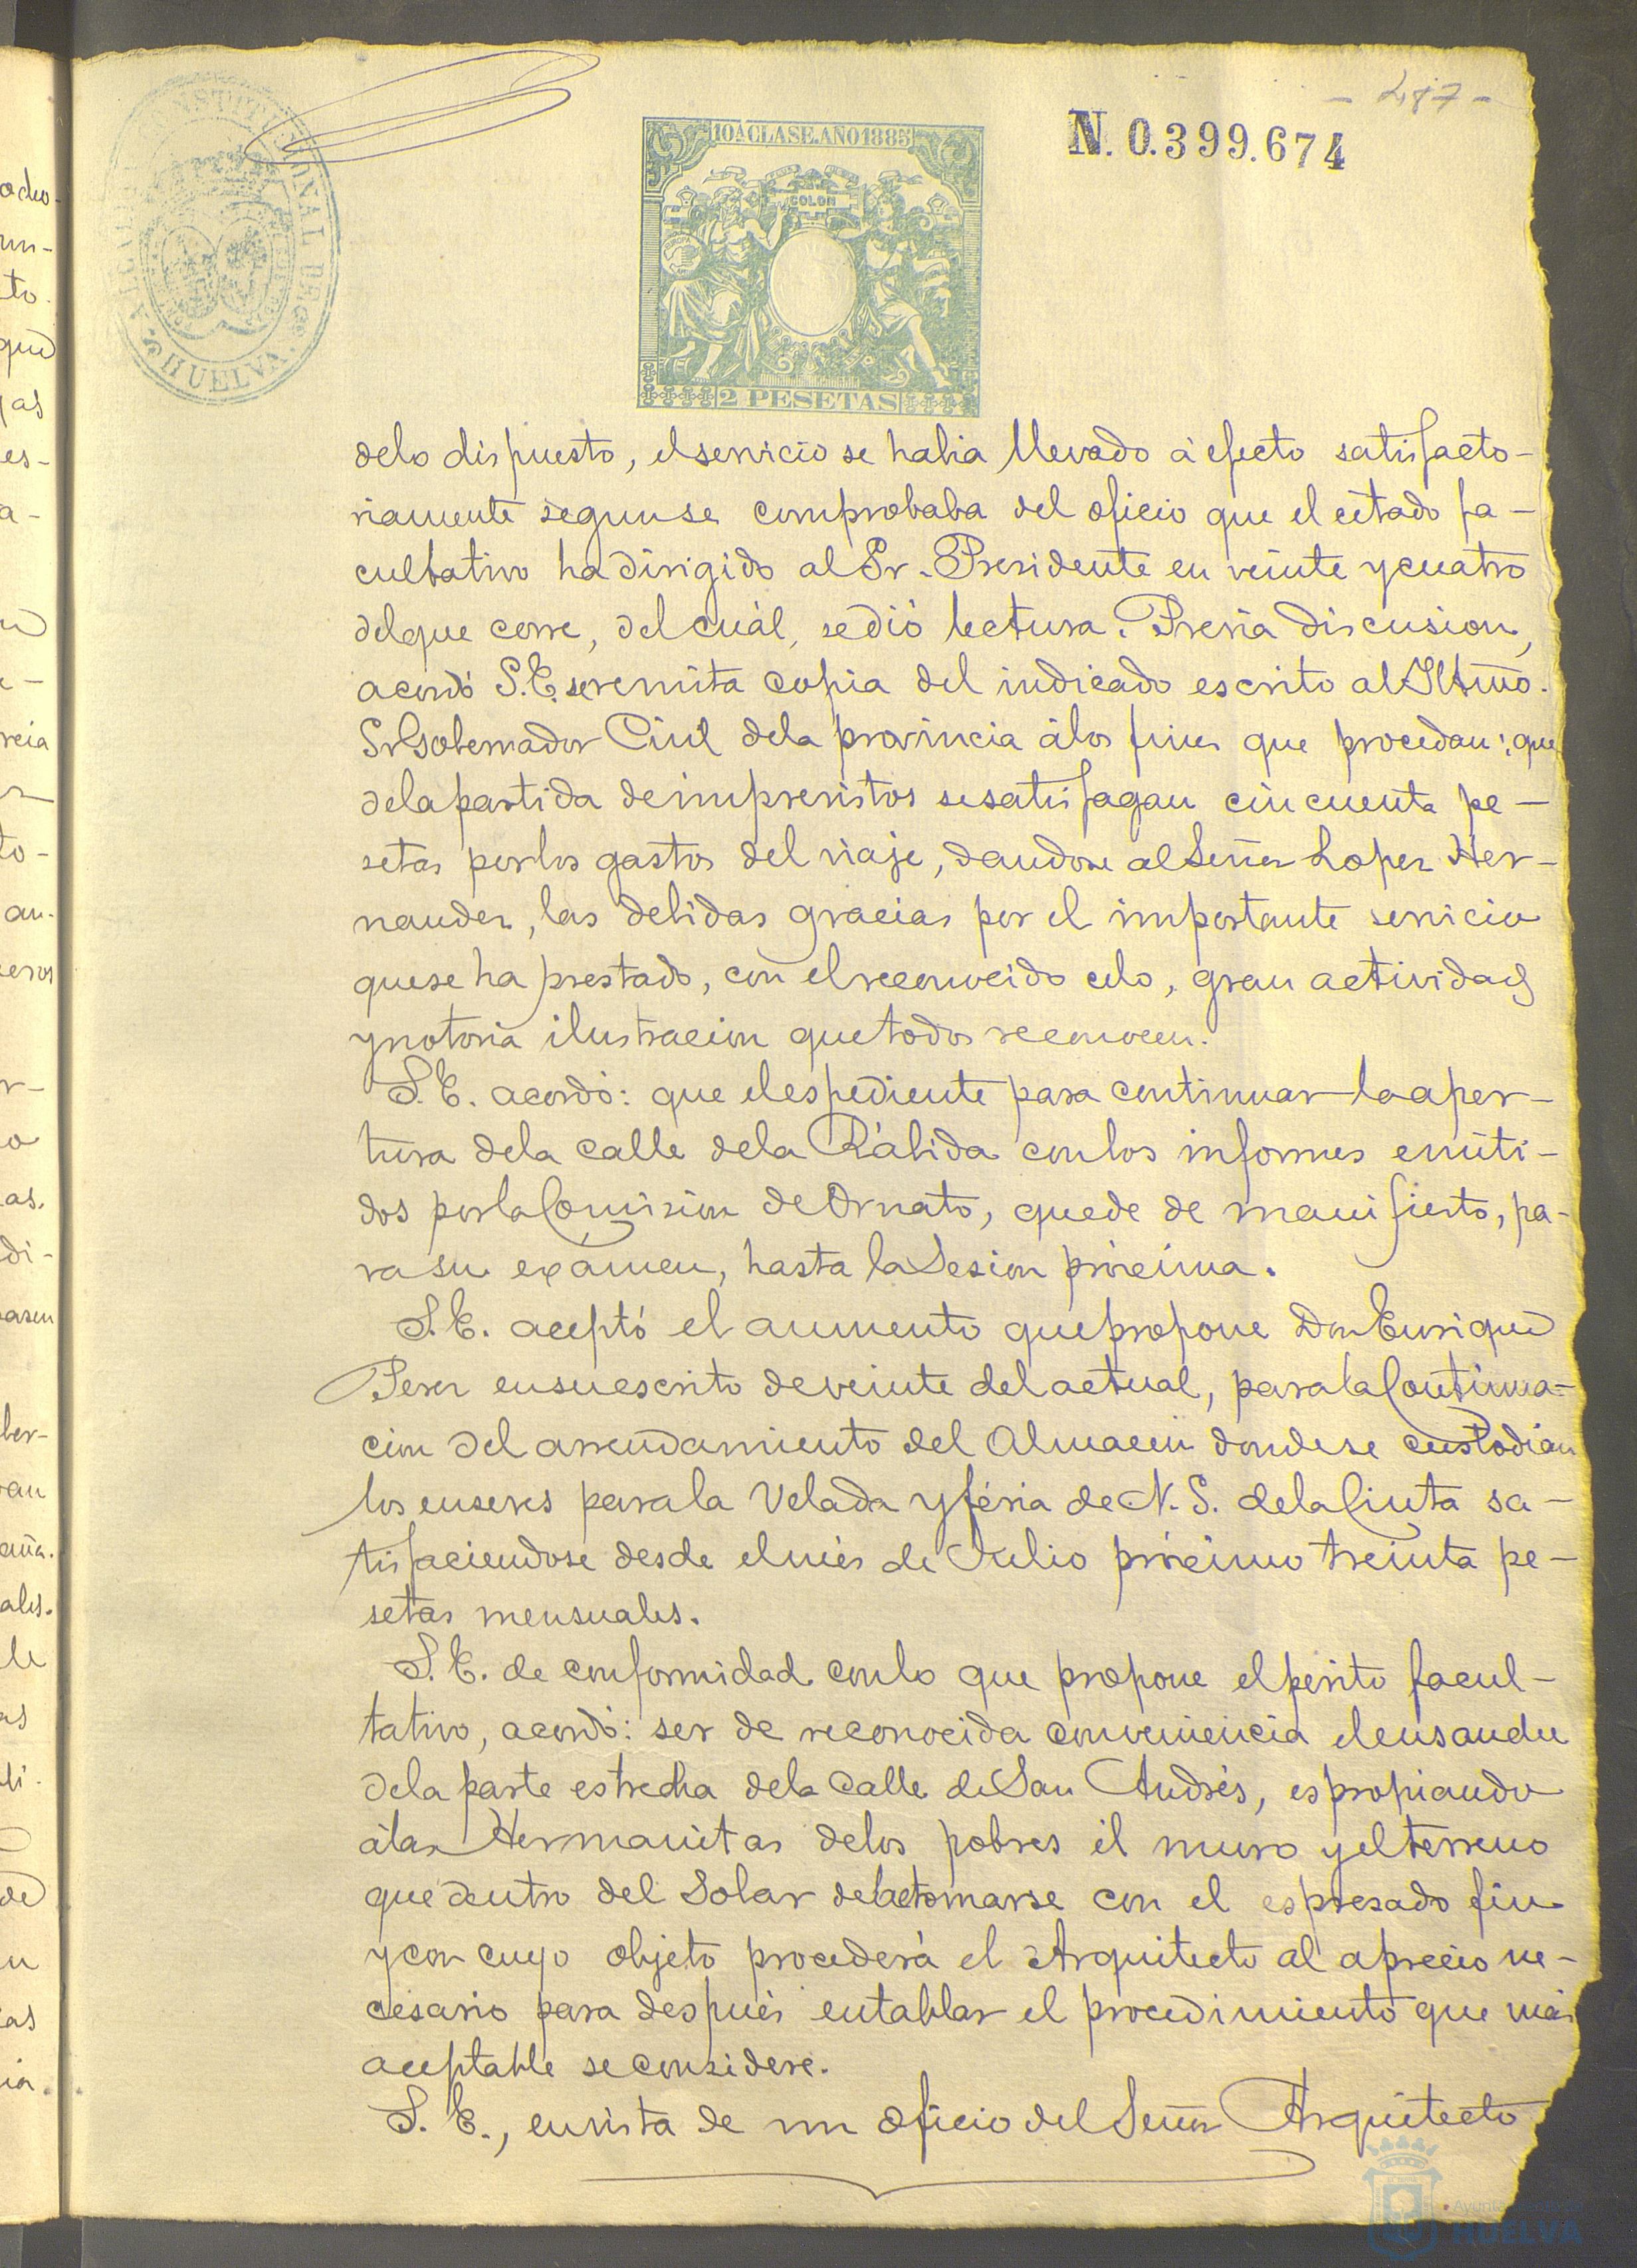 - 487 -
N. 0.399.674
10A CLASE. AÑO 1885
COLON
2 PESETAS
HUELVA
delo dispuesto, elservicio se habia llevado á efecto satisfacto-
riamente segunse comprobaba del oficio que el citado fa-
cultativo ha dirigido al Sr. Presidente en veinte ycuatro
delque corre, del cuál, sedió lectura. Prévia discusion,
acordó S.E. seremita copia del indicado escrito al Iltmo.
Sr Gobernador Civil dela provincia álos fines que procedan: que
delapartida deimprevistos sesatisfagan cincuenta pe-
setas porlos gastos del viaje, dandose alSeñor Lopez Her-
nandez, las debidas gracias por el importante servicio
quese ha prestado, con elreconocido celo, gran actividad
ynotoria ilustracion quetodos reconocen.
S.E. acordó: que elespediente para continuar laaper-
tura dela calle dela Rábida conlos informes emiti-
dos porla Comision de Ornato, quede de manifiesto, pa-
rasu exámen, hasta laSesion próxima.
S.E. aceptó el aumento quepropone Don Enrique
Perez ensuescrito deveinte del actual, parala Continua-
cion del arrendamiento del Almacen dondese custodian
los enseres parala Velada yféria de N. S. dela Cinta sa-
tisfaciendose desde elmes de Julio próximo treinta pe-
setas mensuales.
S.E. de conformidad conlo que propone elperito facul-
tativo, acordó: ser de reconocida conveniencia elensanche
dela parte estrecha dela Calle de San Andrés, espropiando
álas Hermanitas delos pobres el muro yelterreno
que dentro del Solar debetomarse con el espresado fin
ycon cuyo objeto procederá el Arquitecto al aprecio ne-
cesario para despues entablar el procedimiento que más
aceptable seconsidere.
S. E., envista de un oficio del Señor Arquitecto
HUELVA